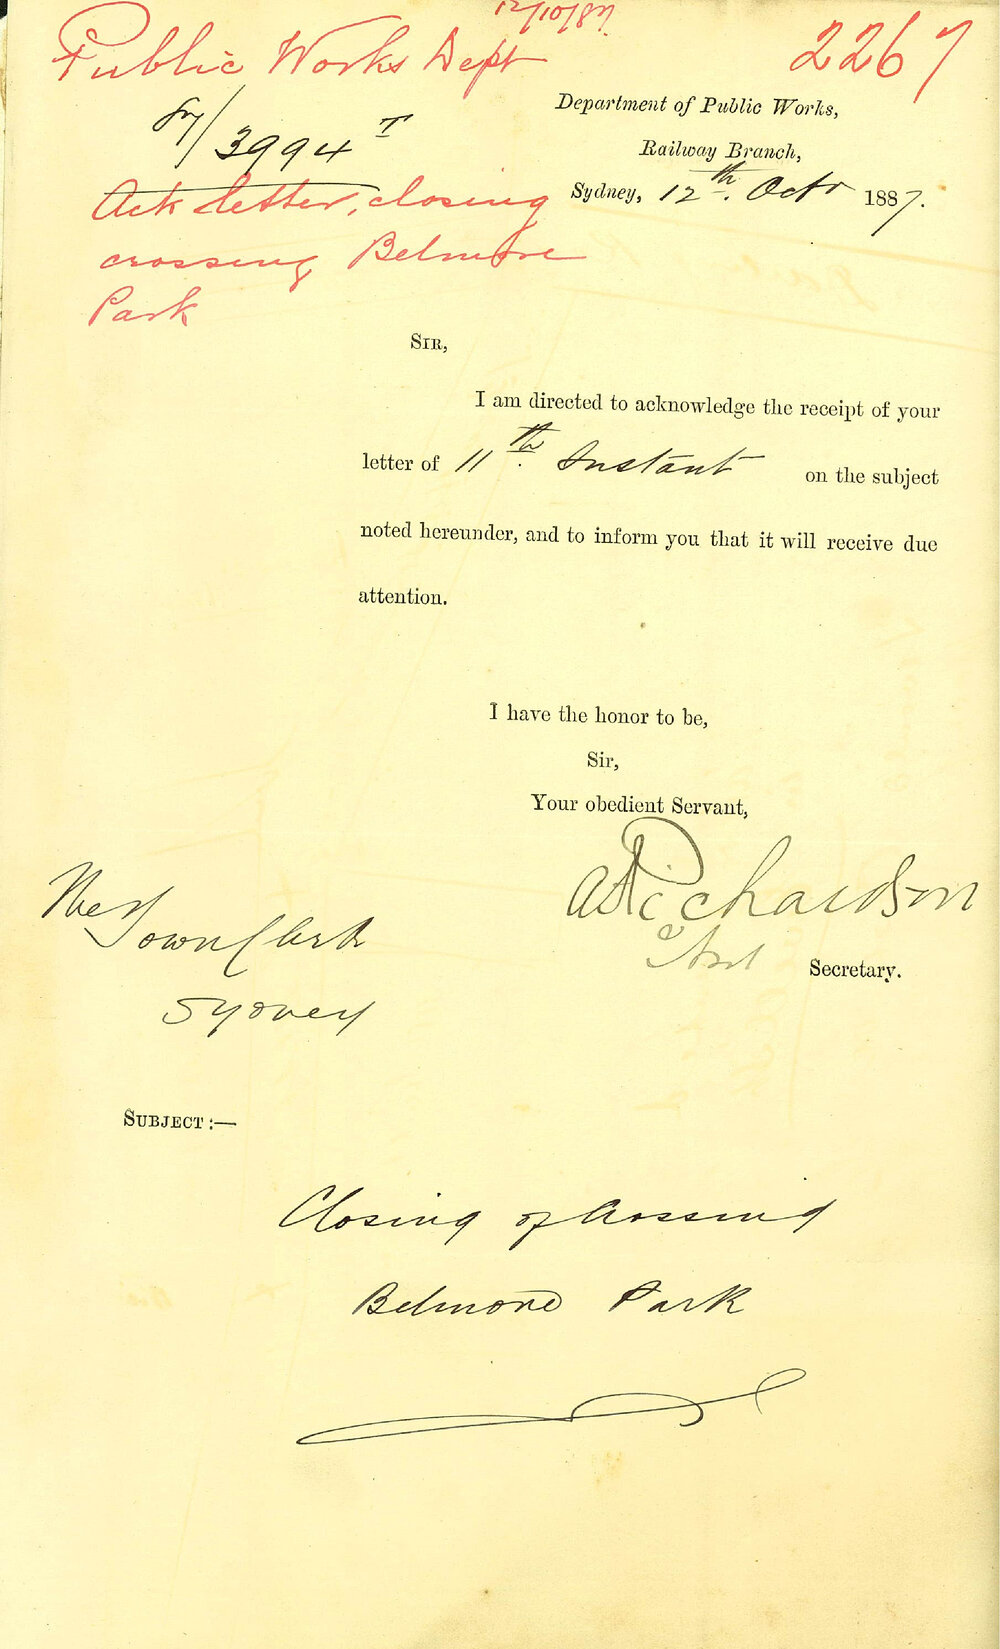 12/10/87.
Public Works Dept
2267
87/3994 T
Department of Public Works,
Railway Branch,
Sydney, 12th. Octr 1887.
Ack letter, closing
crossing Belmore
Park
SIR,
I am directed to acknowledge the receipt of your
letter of 11th. Instant on the subject
noted hereunder, and to inform you that it will receive due
attention.
I have the honor to be,
Sir,
Your obedient Servant,
Richardson
Secretary.
The Town Clerk
Sydney
SUBJECT :—
Closing of Crossing
Belmore Park